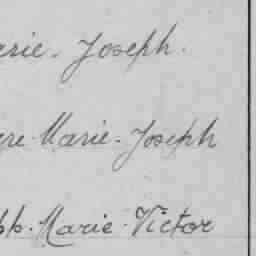 erie - Joseph.
re Marie - Joseph
ph - Marie - Victor